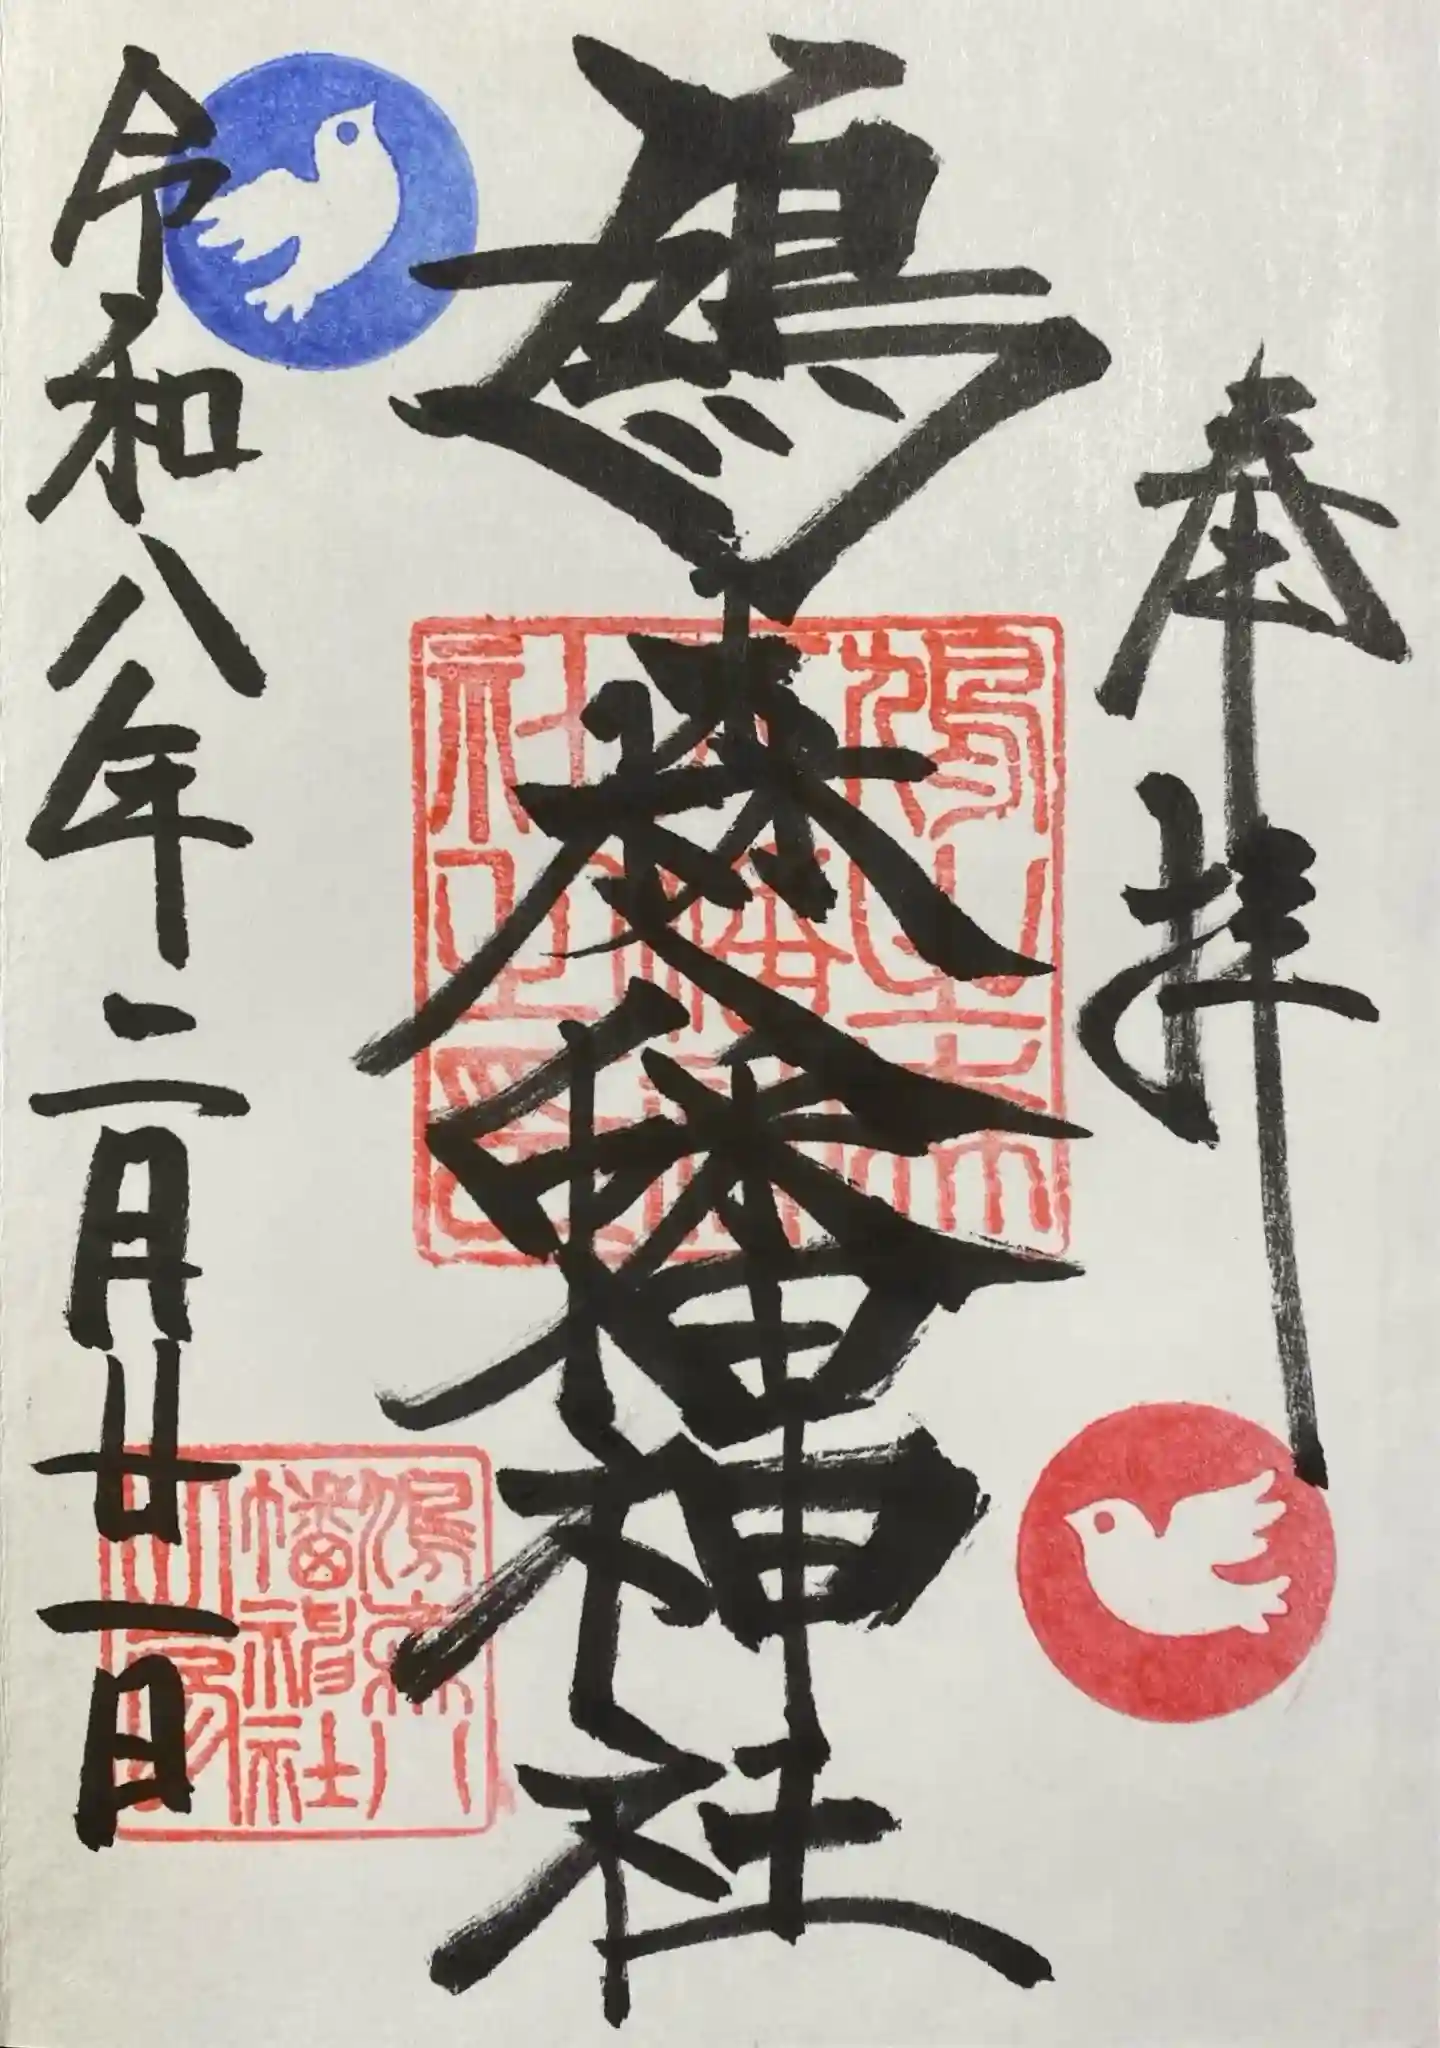 奉拝
鳩森八幡神社
鳩之森
八幡神
社之印
令和八年二月廿一日
鳩森八
幡神社